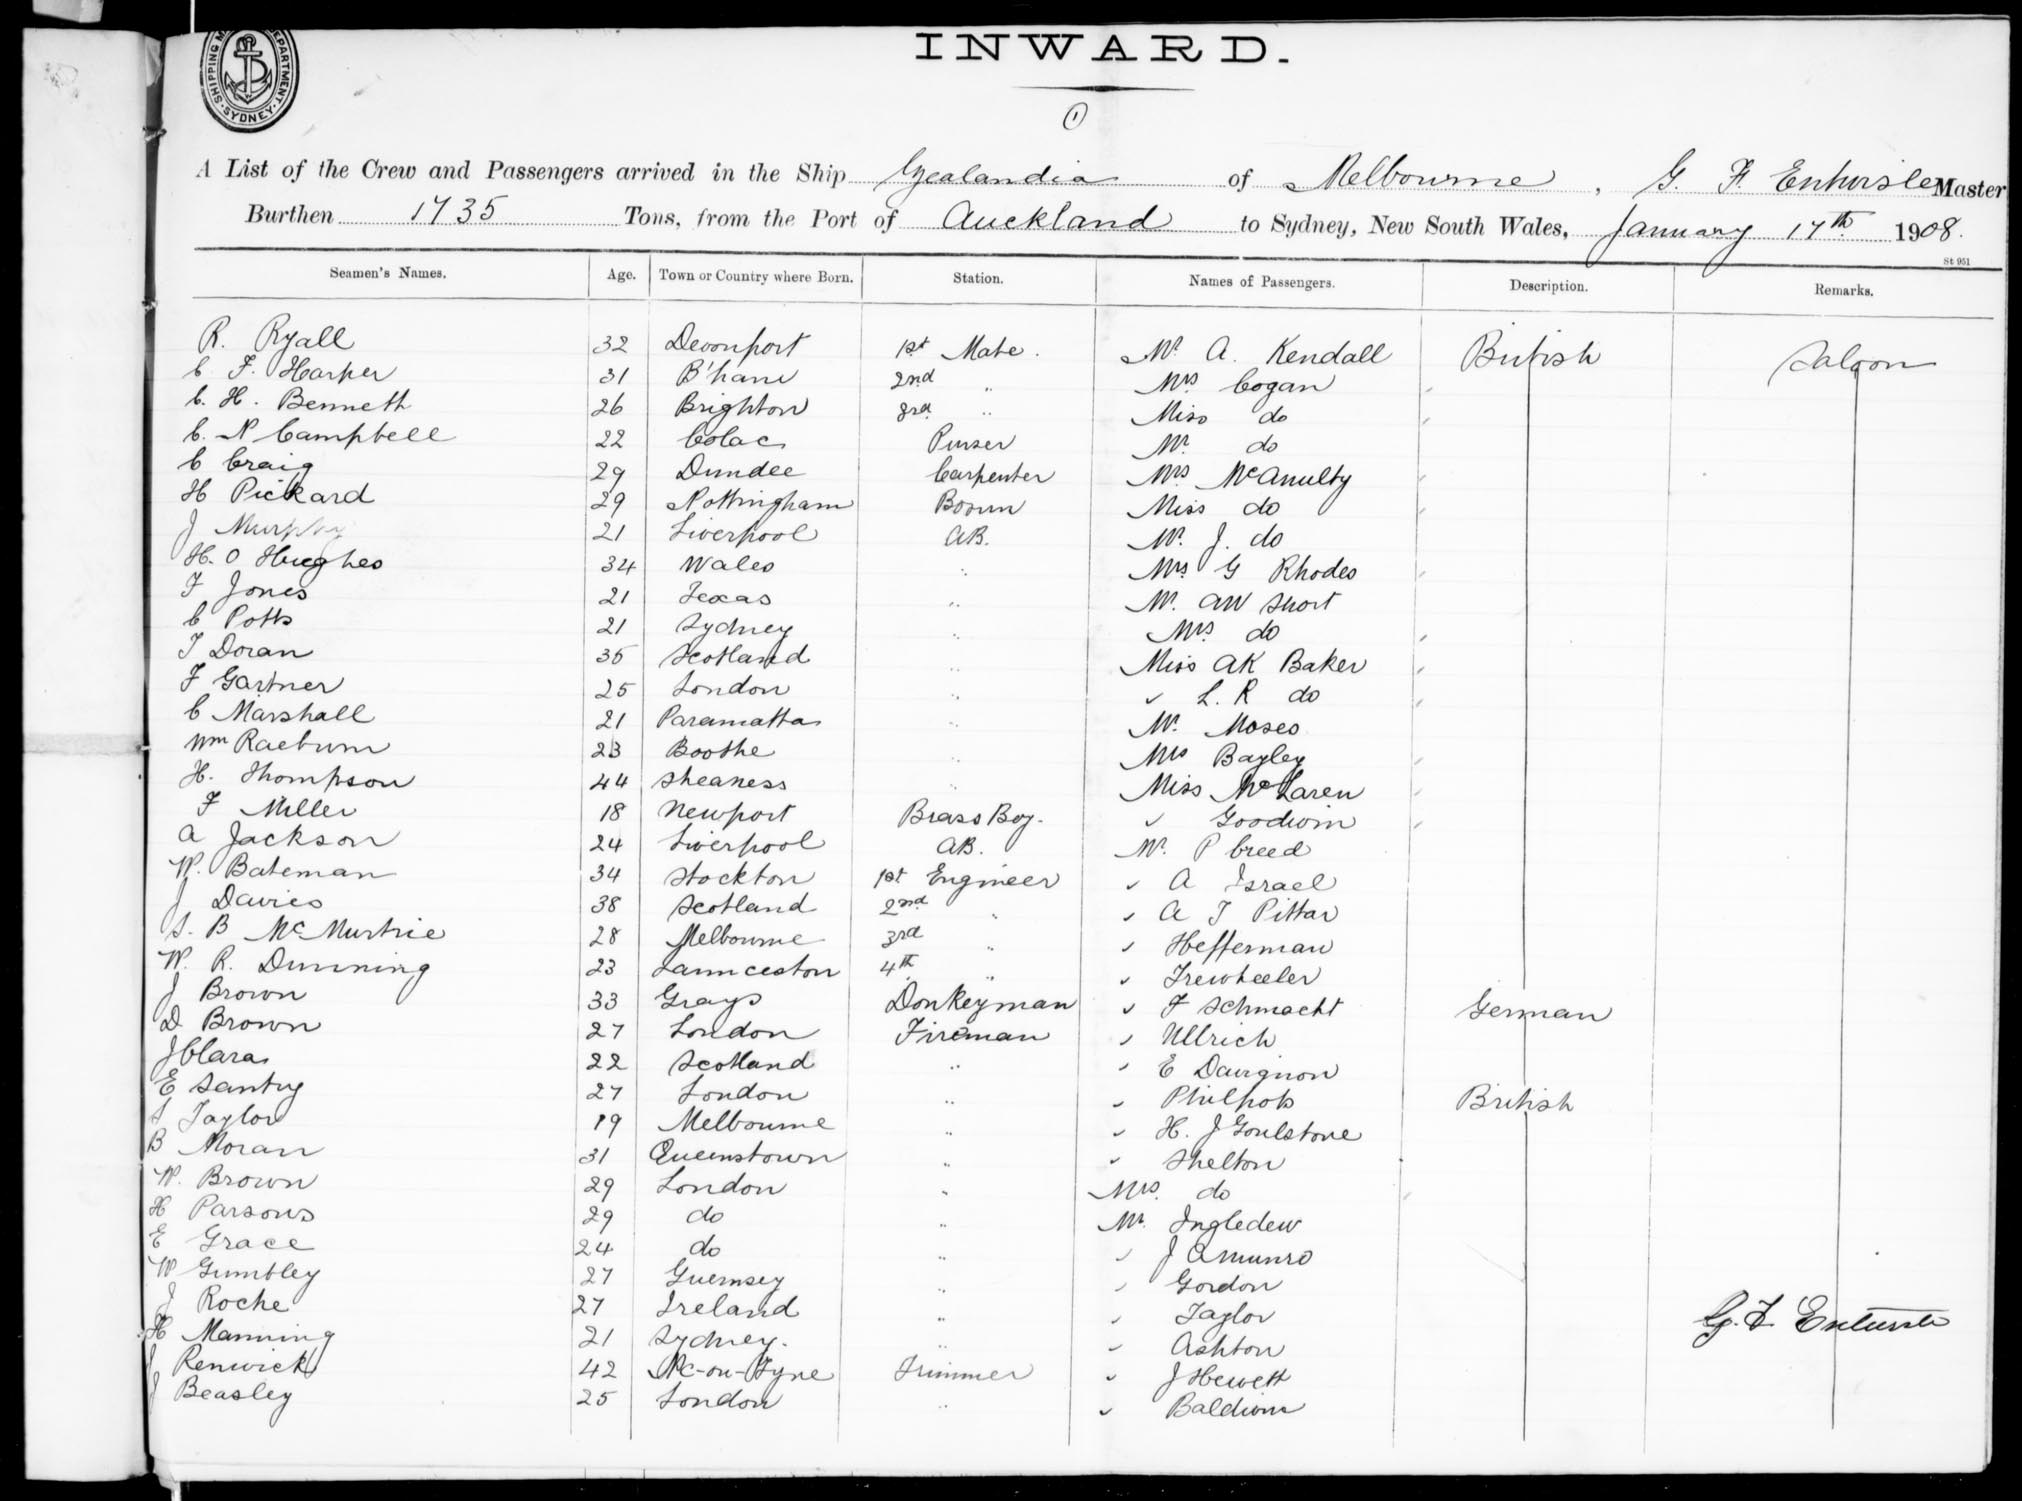 SHIPPING M DEPARTMENT. SYDNEY.
INWARD.
1
A List of the Crew and Passengers arrived in the Ship Zealandia of Melbourne, G. F. Entwisle Master
Burthen 1735 Tons, from the Port of Auckland to Sydney, New South Wales, January 17th 1908.
St 951
Seamen's Names. Age. Town or Country where Born. Station. Names of Passengers. Description. Remarks.
R. Ryall 32 Devonport 1st Mate. Mr A. Kendall British Saloon
C. F. Harper 31 B'ham 2nd " Mrs Cogan
C. H. Bennett 26 Brighton 3rd " Miss do
C. N Campbell 22 Colac Purser Mr do
C Craig 29 Dundee Carpenter Mrs McAnulty
H Pickard 29 Nottingham Bosun Miss do
J Murphy 21 Liverpool AB. Mr. J. do
H. O Hughes 34 Wales " Mrs G Rhodes
F Jones 21 Texas " Mr. AW Short
C Potts 21 Sydney " Mrs do
T Doran 35 Scotland " Miss AK Baker
F Gartner 25 London " " L. R do
C Marshall 21 Paramatta " Mr. Moses
Wm Raeburn 23 Boothe " Mrs Bayley
H. Thompson 44 Sheaness " Miss McLaren
F Miller 18 Newport Brass Boy. " Goodwin
A Jackson 24 Liverpool AB. Mr. P Creed
W. Bateman 34 Stockton 1st Engineer " A Israel
J Davies 38 Scotland 2nd " " A J Pittar
S. B McMurtrie 28 Melbourne 3rd " " Hefferman
W. R. Dunning 23 Launceston 4th " " Trewheeler
J Brown 33 Grays Donkeyman " F Schmacht German
D Brown 27 London Fireman " Ullrich
J Clara 22 Scotland " " E Davignon
E Santry 27 London " " Philpots British
S Taylor 19 Melbourne " " H. J Goulstone
B Moran 31 Queenstown " " Shelton
W. Brown 29 London " Mrs. do
H Parsons 29 do " Mr. Ingledew
E Grace 24 do " " J A Munro
W Gumbley 27 Guernsey " " Gordon
J Roche 27 Ireland " " Taylor G. F. Entwisle
H Manning 21 Sydney. " " Ashton
J Renwick 42 Nc-on-Tyne Trimmer " J Hewett
J Beasley 25 London " " Baldwin